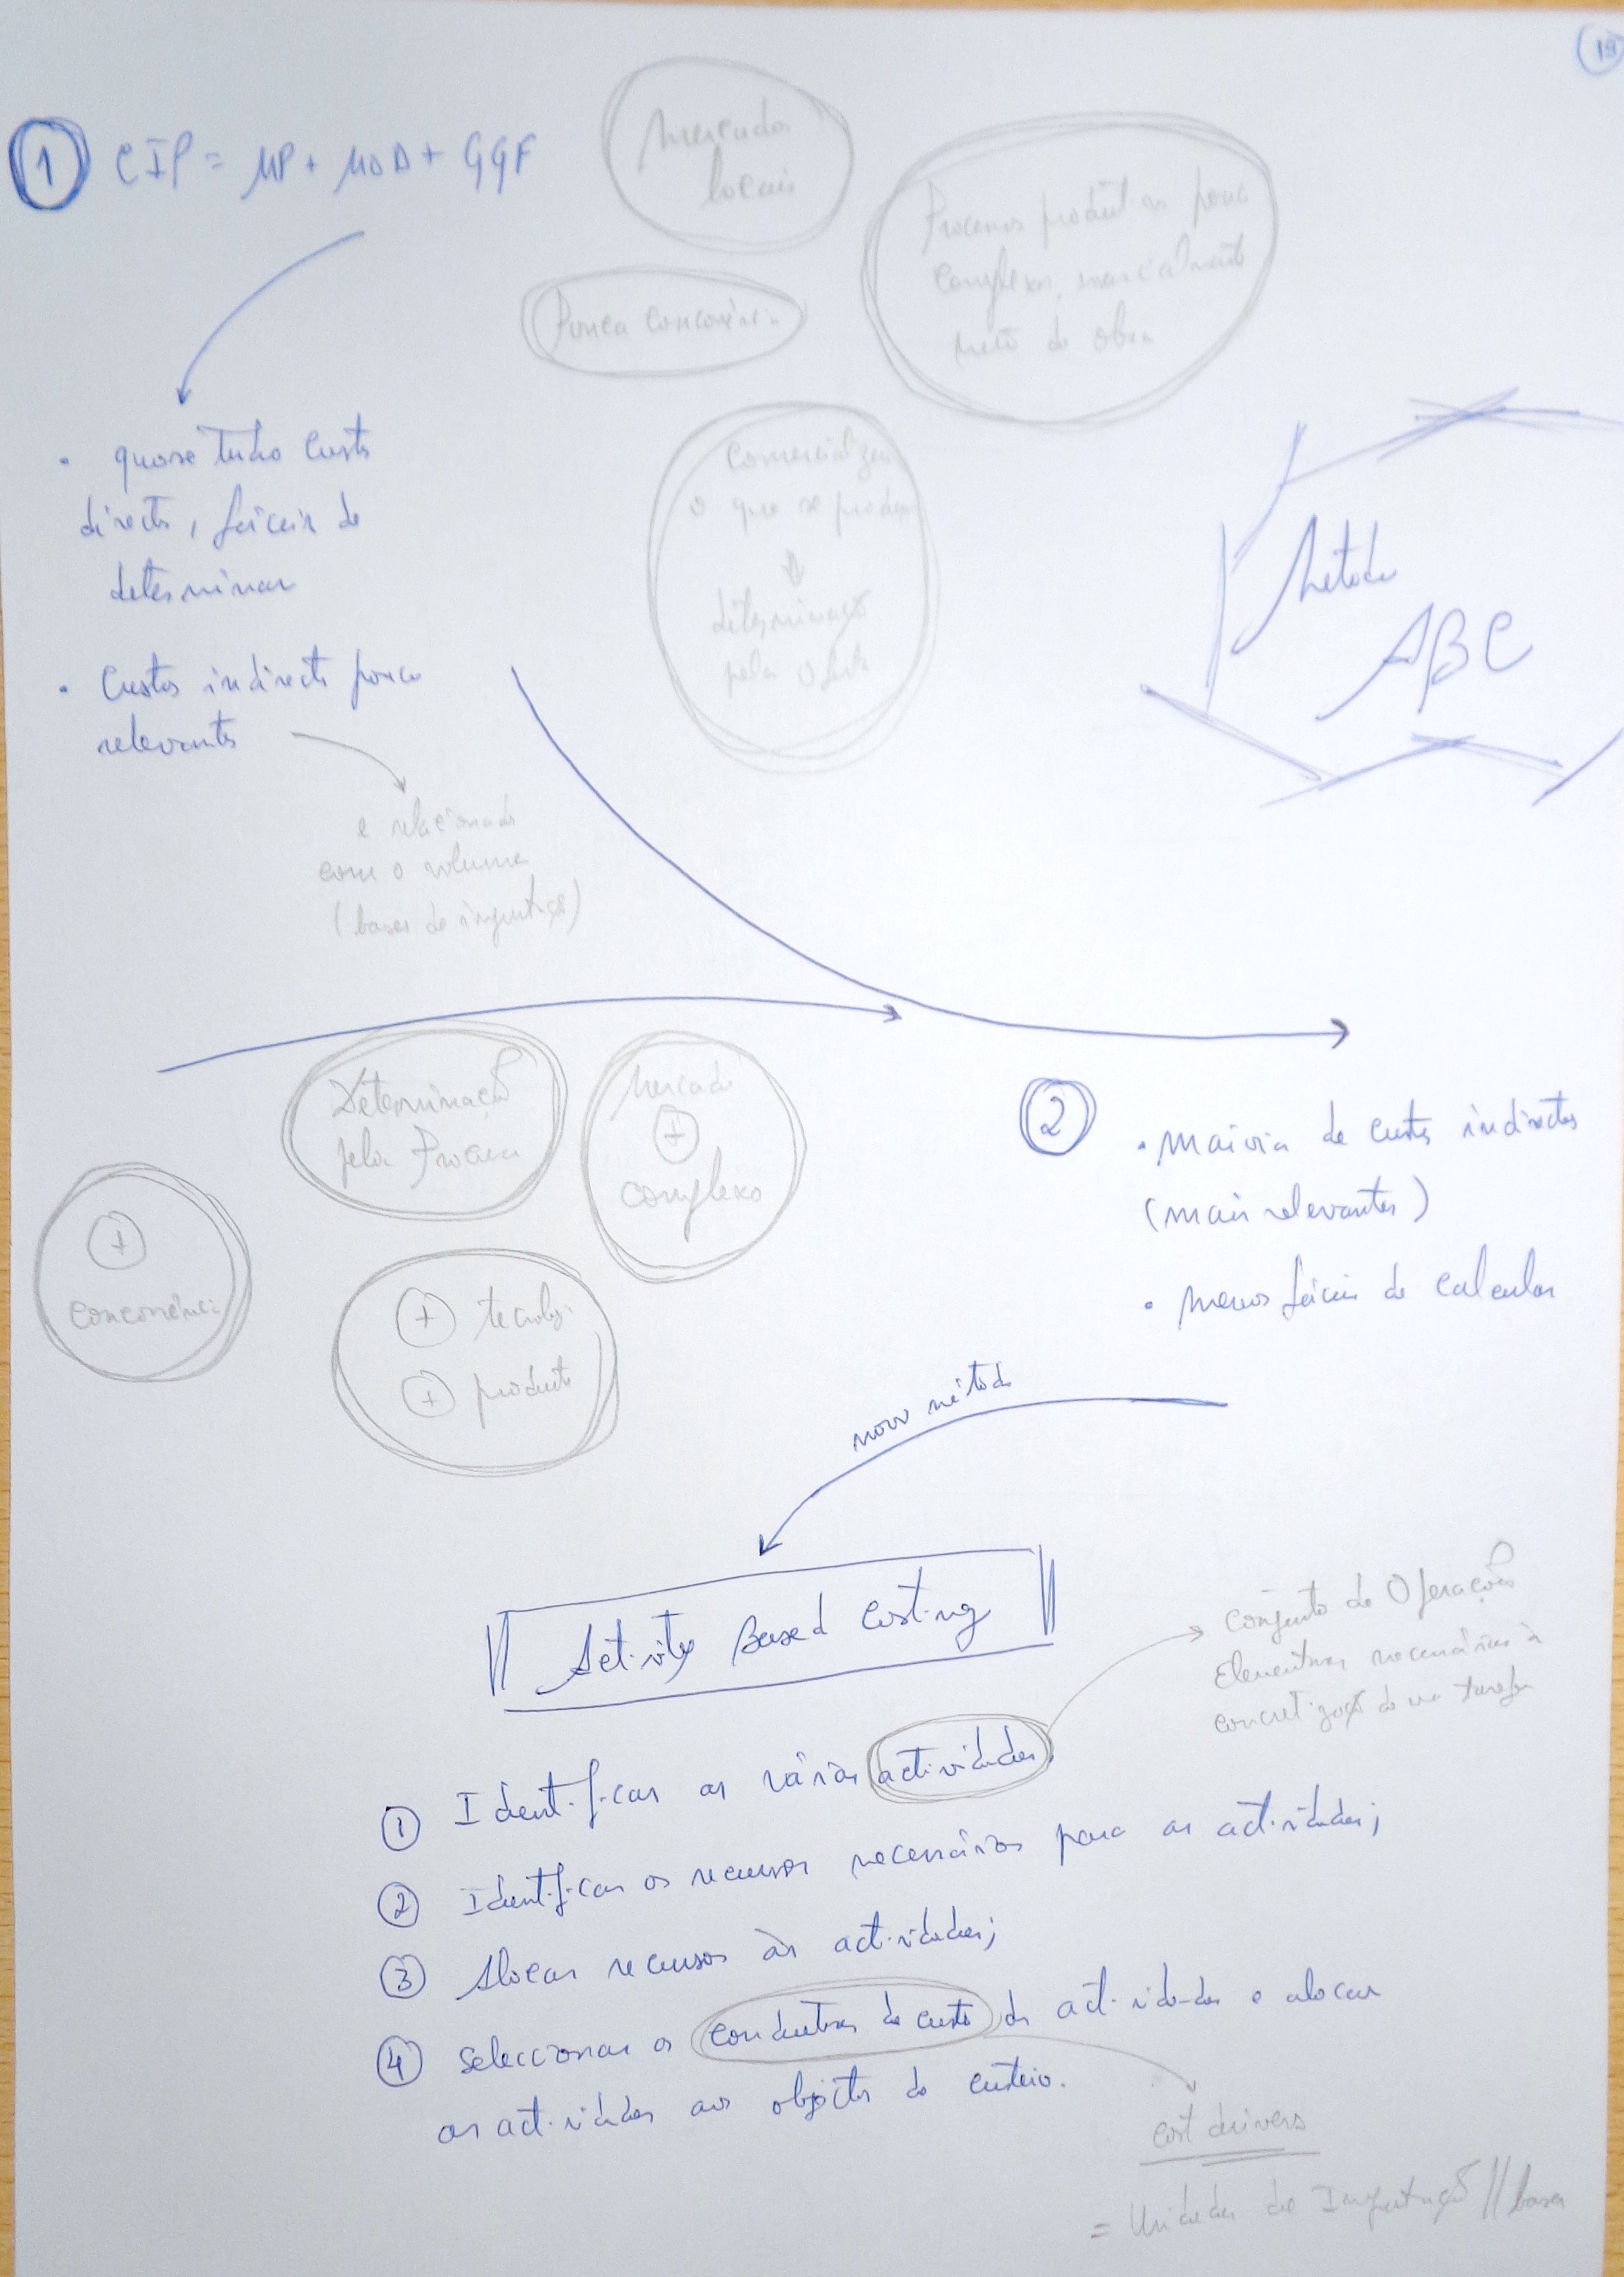 19
① CIP = MP + MOD + GGF
Mercados
locais
Processos produtivos pouco
complexos, essencialmente
mão de obra
Pouca concorrência
• quase tudo custos
directos, fáceis de
determinar
• Custos indirectos pouco
relevantes
e relacionados
com o volume
(bases de imputação)
Comercializam
o que se produz
⇓
determinação
pela Oferta
Método
ABC
Determinação
pela Procura
Mercado
+
complexo
+
concorrência
+ tecnologia
+ produtos
② • maioria de custos indirectos
(mais relevantes)
• menos fáceis de calcular
novo método
Activity Based Costing
Conjunto de Operações
Elementares necessárias à
concretização de uma tarefa
① Identificar as várias actividades;
② Identificar os recursos necessários para as actividades;
③ Alocar recursos às actividades;
④ Seleccionar os condutores de custo de actividades e alocar
as actividades aos objectos de custeio.
cost drivers
= Unidades de Imputação // bases